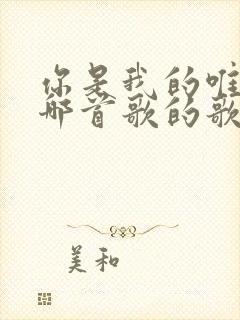 你是我的唯
那首歌的歌
美和